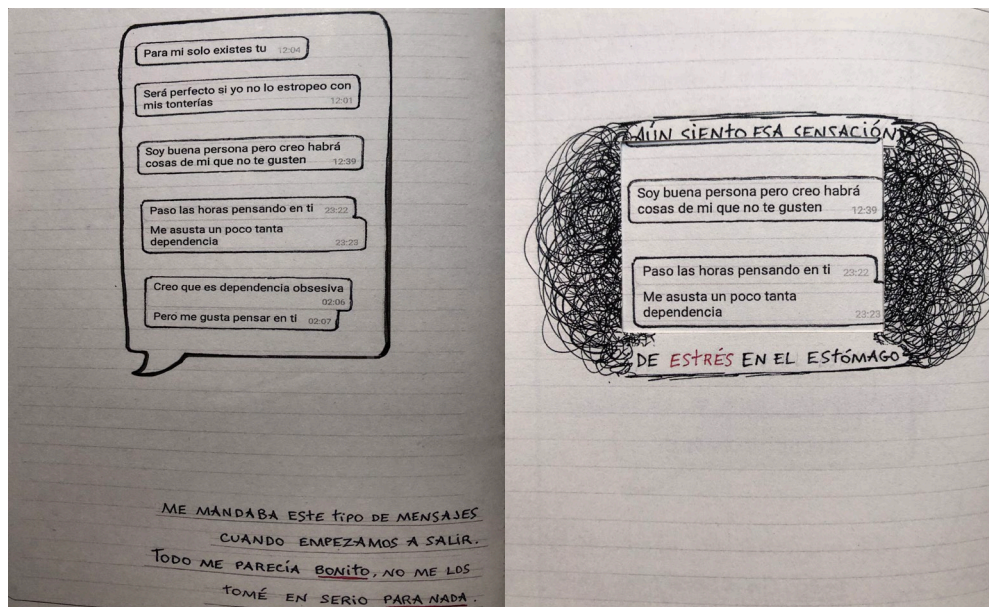 Para mi solo existes tu 12:04
Será perfecto si yo no lo estropeo con
mis tonterías 12:01
Soy buena persona pero creo habrá
cosas de mi que no te gusten 12:39
Paso las horas pensando en ti 23:22
Me asusta un poco tanta
dependencia 23:23
Creo que es dependencia obsesiva
02:06
Pero me gusta pensar en ti 02:07
ME MANDABA ESTE TIPO DE MENSAJES
CUANDO EMPEZAMOS A SALIR.
TODO ME PARECÍA BONITO, NO ME LOS
TOMÉ EN SERIO PARA NADA.
AÚN SIENTO ESA SENSACIÓN
Soy buena persona pero creo habrá
cosas de mi que no te gusten 12:39
Paso las horas pensando en ti 23:22
Me asusta un poco tanta
dependencia 23:23
DE ESTRÉS EN EL ESTÓMAGO